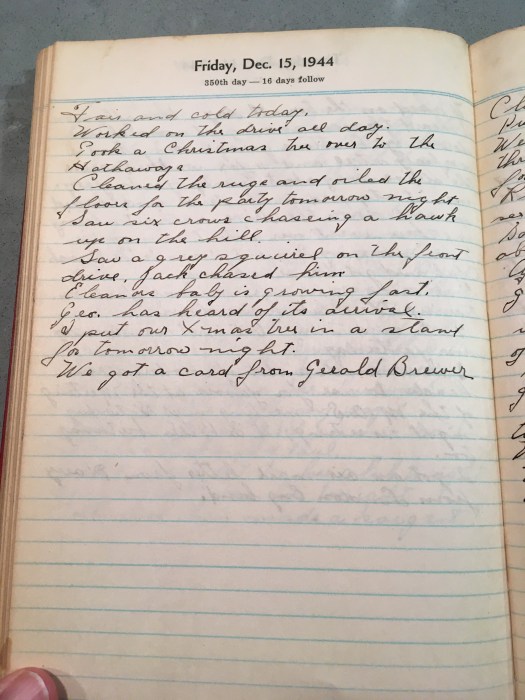 Friday, Dec. 15, 1944
350th day — 16 days follow
Fair and cold today.
Worked on the drive all day.
Took a Christmas tree over to the
Hathaways
Cleaned the rugs and oiled the
floors for the party tomorrow night
Saw six crows chaseing a hawk
up on the hill.
Saw a grey squirel on the front
drive. Jack chased him
Eleanors baby is growing fast.
Geo. has heard of its arrival.
I put our X-mas tree in a stand
for tomorrow night.
We got a card from Gerald Brewer